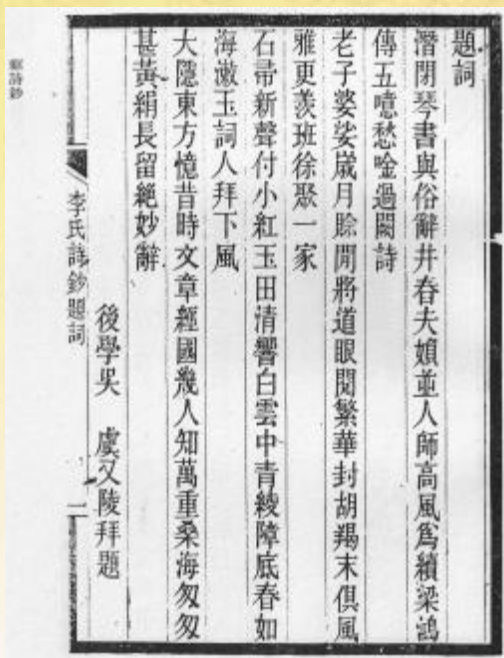 題詞
潛閉琴書與俗辭井春夫媍並人師高風爲續梁鴻
傳五噫愁唫過闕詩
老子婆娑嵗月賒閒將道眼閱繁華封胡羯末俱風
雅更羨班徐聚一家
石帚新聲付小紅玉田清響白雲中青綾障底春如
海漱玉詞人拜下風
大隱東方憶昔時文章經國幾人知萬重桑海匆匆
甚黃絹長留絶妙辭
後學吳 虞又陵拜題
李氏詩鈔題詞
一
詩鈔